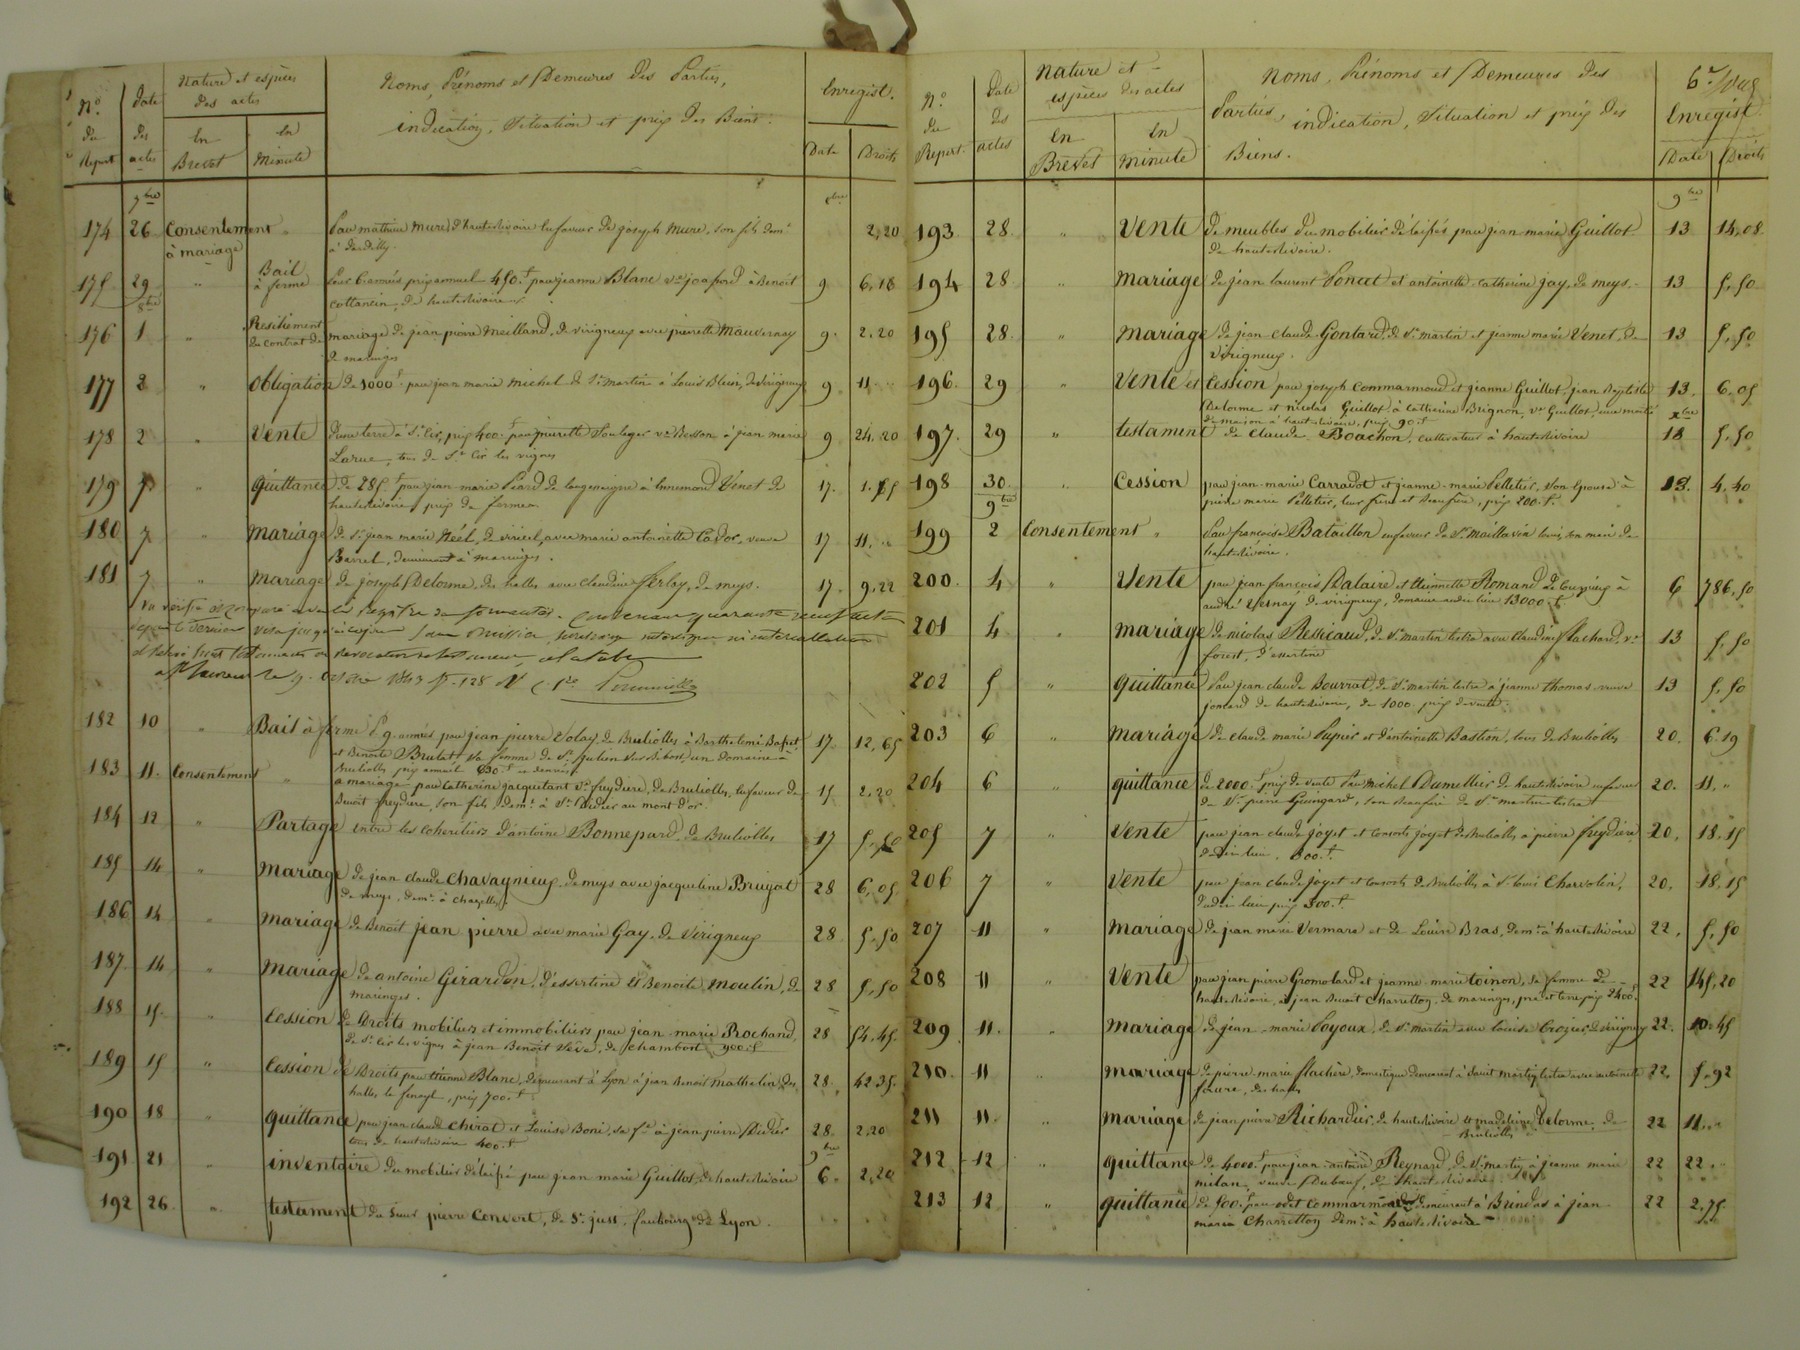 N.o du Repert
Date des actes
Nature et espèces des actes
En Brevet
En Minute
Noms, Prénoms et Demeures des Parties,
indication, Situation et prix des Biens.
Enregist.
Date
Droits
9bre
8bre
174 26 Consentement " Par mathieu Mure d'hauterivoire en faveur de joseph Mure, son fils dem.t 2,20
à mariage à
175 29 " Bail pour 6 années prix annuel 450.f par jeanne Blanc v.e joassard à Benoit 9 6,18
à ferme cottancin, de hauterivoire
8bre
176 1 " Resiliement mariage de jean pierre Meilland, de virigneux avec pierrette Mauvernay 9. 2,20
du contrat de de maringes
177 2 " Obligation de 1000.f par jean marie Michel de S.t martin à Louis Blein, de virigneux 9 11
178 2 " Vente d'une terre à S.t Cir, prix 400.f par pierrette Souleger v.e Besson à jean marie 9 24,20
Larue, tous de S.t Cir les vignes
179 7 " Quittance de 285.f par jean marie Peard de longessaigne à Ennemond Venet de 17. 1.85
hauterivoire prix de ferme
180 7 " Mariage de S.r jean marie Néel, de viricel, avec marie antoinette Cador, veuve 17 11,
Barrel, demeurant à maringes.
181 7 " Mariage de joseph Delorme, des halles avec claudine Ferlay, de meys. 17. 9,22
182 10 " Bail à ferme P. 9 années par jean pierre Volay, de Brulioles à Barthelemi Basset 17. 12,65
et Benoite Brulat sa femme de S.t julien sur Bibost, un domaine à
Brulioles prix annuel 630.f et denrées
183 11. Consentement " à mariage par catherine jacquetant v.e freydiere, de Brulioles, en faveur de 15 2,20
Benoit freydiere, son fils, dem.t à S.t Didier au mont d'or.
184 12 " Partage entre les coheritiers d'antoine Bonnepard, de Brulioles 17 5,50
185 14 " Mariage de jean claude Chavagnieux de meys avec jacqueline Brugat 28 6,05
de meys, dem.t à Chazelles
186 14 " Mariage de Benoit jean pierre avec marie Gay, de Virigneux 28 5,50
187 14 " Mariage de antoine Girardon, d'essertine et Benoite Moulin, de 28 5,50
maringes.
188 15. " Cession de Droits mobiliers et immobiliers par jean marie Rochand, 28 54,45.
de S.t Cir les vignes à jean Benoit Vève, de Chambost 900.f
189 15 " Cession de Droits par étienne Blanc, demeurant à Lyon à jean Benoit Mathelin, des 28. 42,35.
halles le fenoyl, prix 700.f
190 18 " Quittance par jean claude Chirat et Louise Boni, sa f.e à jean pierre Didier 28 2,20
tous de hauterivoire 400.f
9bre
191 21 " inventaire du mobilier délaissé par jean marie Guillot, de hauterivoire 6. 2,20
192 26 " testament du Sieur pierre Convert, de S.t just, faubourg de Lyon.
N.o du Repert.
Date des actes
Nature et espèces des actes
En Brevet
En Minute
Noms, Prénoms et Demeures des
Parties, indication, Situation et prix des
Biens.
Enregist
Date
Droits
9bre
193 28. " Vente de meubles du mobilier délaissés par jean marie Guillot 13 14,08
de hauterivoire.
194 28 " Mariage de jean laurent Poncet et antoinette catherine jay, de meys. 13 5,50
195 28. " Mariage de jean claude Gontard, de S.t martin et jeanne marie Venet, de 13 5,50
Virigneux.
196. 29 " Vente et Cession par joseph Commarmond et jeanne Guillot, jean Baptiste 13. 6.05
Delorme et nicolas Guillot à catherine Brignon, v.e Guillot, une moitié
de maison à hauterivoire, prix 90.f
xbre
197. 29 " testament de claude Boachon, cultivateur à hauterivoire 18 5,50
198 30. " Cession par jean marie Carradot et jeanne marie Pelletier, son épouse à 13. 4,40
pierre marie Pelletier, leur frère et beau frère, prix 200.f
9bre
199 2 Consentement " Par françoise Bataillon en faveur de S.r Maillavin louis, son mari de
hauterivoire.
200. 4 " Vente par jean françois Dalaire et étiennette Romand de Cuzieux à 6 786,50
andré Vernay de virigneux, domaine audit lieu 13000.f
201 4 " Mariage de nicolas Ressicaud, de S.t martin lestra avec claudine flachard, v.e 13 5,50
forest, d'essertine
202 5 " Quittance Par jean claude Bourrat, de S.t martin lestra à jeanne thomas veuve 13 5,50
joassard de hauterivoire, de 1000. prix de vente
203 6 " Mariage de claude marie Supier et d'antoinette Bastion, tous de Brulioles 20. 6.19
204 6 " Quittance de 2000.f prix de vente Par Michel Dumellier de hauterivoire en faveur 20. 11,"
de S.r pierre Guingard, son beau frère de S.t martin lestra
205 7 " Vente par jean claude joyet et consorts joyet de Brulioles à pierre freydiere 20, 18,15
dudit lieu, 300.f
206 7 " Vente par jean claude joyet et consorts de Brulioles à S.r louis Charvolin, 20, 18,15
dudit lieu prix 300.f
207 11 " Mariage de jean marie Vermare et de Louise Bras, dem.t à hauterivoire 22, 5,50
208 11 " Vente par jean pierre Gromolard et jeanne marie toinon, sa femme de 22 145,20
hauterivoire, à jean Benoit Charretton, de maringes, pré et terre prix 2400.f
209 11. " Mariage de jean marie Soyoux, de S.t martin avec louise Crozier, de virigneux 22. 10.45
210. 11 " Mariage de pierre marie flachère, domestique demeurant à Saint martin lestra avec antoinette 22. 5.92
faure, de
211 11. " Mariage de jean pierre Richardier, de hauterivoire et madeleine Delorme, de 22 11..
Brulioles
212 12 " Quittance de 4000.f par jean antoine Reynard, de S.t martin à jeanne marie 22 22."
milan, veuve Dubœuf, de hauterivoire
213 12 " Quittance de 500.f par odet Commarmond demeurant à Brindas à jean 22 2,75
marie Charretton dem.t à hauterivoire